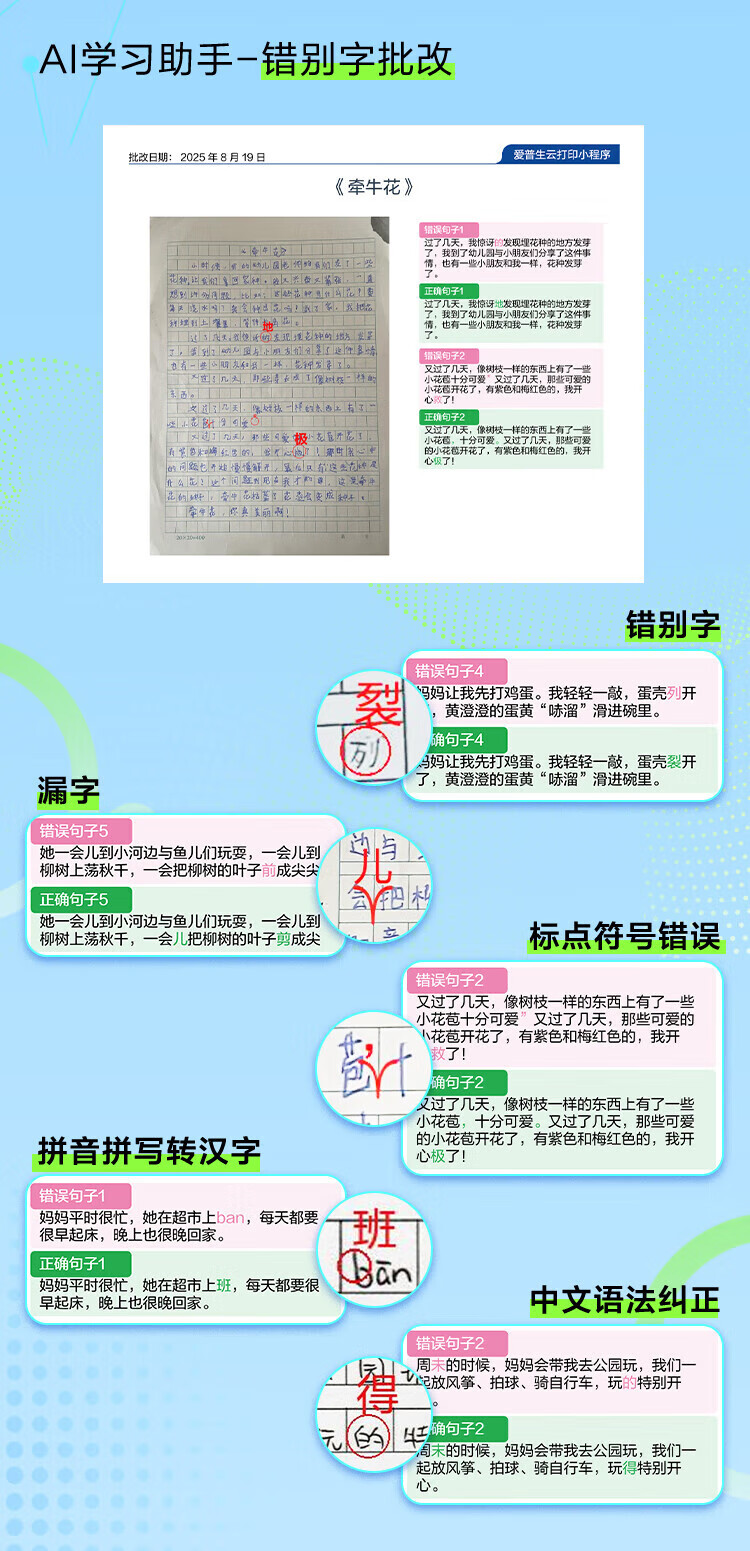 AI学习助手-错别字批改
批改日期： 2025 年 8 月 19 日
爱普生云打印小程序
《 牵牛花 》
《牵牛花》
地
极
20×20=400
错误句子1
过了几天，我惊讶的发现埋花种的地方发芽
了，我到了幼儿园与小朋友们分享了这件事
情，也有一些小朋友和我一样，花种发芽
了。
正确句子1
过了几天，我惊讶地发现埋花种的地方发芽
了，我到了幼儿园与小朋友们分享了这件事
情，也有一些小朋友和我一样，花种发芽
了。
错误句子2
又过了几天，像树枝一样的东西上有了一些
小花苞十分可爱”又过了几天，那些可爱的
小花苞开花了，有紫色和梅红色的，我开
心救了！
正确句子2
又过了几天，像树枝一样的东西上有了一些
小花苞，十分可爱。又过了几天，那些可爱
的小花苞开花了，有紫色和梅红色的，我开
心极了！
错别字
裂
列
错误句子4
妈妈让我先打鸡蛋。我轻轻一敲，蛋壳列开
，黄澄澄的蛋黄“哧溜”滑进碗里。
确句子4
妈妈让我先打鸡蛋。我轻轻一敲，蛋壳裂开
了，黄澄澄的蛋黄“哧溜”滑进碗里。
漏字
错误句子5
她一会儿到小河边与鱼儿们玩耍，一会儿到
柳树上荡秋千，一会把柳树的叶子前成尖尖
正确句子5
她一会儿到小河边与鱼儿们玩耍，一会儿到
柳树上荡秋千，一会儿把柳树的叶子剪成尖
边与
儿
会把
标点符号错误
错误句子2
又过了几天，像树枝一样的东西上有了一些
小花苞十分可爱”又过了几天，那些可爱的
小花苞开花了，有紫色和梅红色的，我开
救了！
确句子2
又过了几天，像树枝一样的东西上有了一些
小花苞，十分可爱。又过了几天，那些可爱
的小花苞开花了，有紫色和梅红色的，我开
心极了！
苞，十
拼音拼写转汉字
错误句子1
妈妈平时很忙，她在超市上ban，每天都要
很早起床，晚上也很晚回家。
正确句子1
妈妈平时很忙，她在超市上班，每天都要很
早起床，晚上也很晚回家。
班
bān
中文语法纠正
得
玩的特
错误句子2
周未的时候，妈妈会带我去公园玩，我们一
起放风筝、拍球、骑自行车，玩的特别开
。
确句子2
周末的时候，妈妈会带我去公园玩，我们一
起放风筝、拍球、骑自行车，玩得特别开
心。